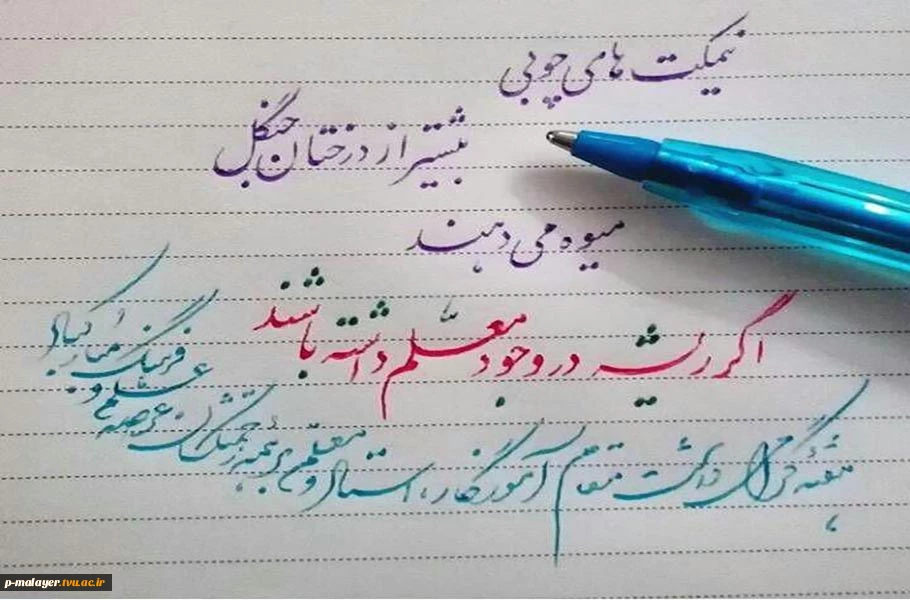 نیمکت های چوبی
بیشتر از درختان جنگل
میوه می دهند
اگر ریشه در وجود معلّم داشته باشند
هفتهٔ گرامی داشت مقام آموزگار، استاد و معلّم بر همه زحمتکشان عرصه علم و
فرهنگ مبارکباد
p-malayer.tvu.ac.ir